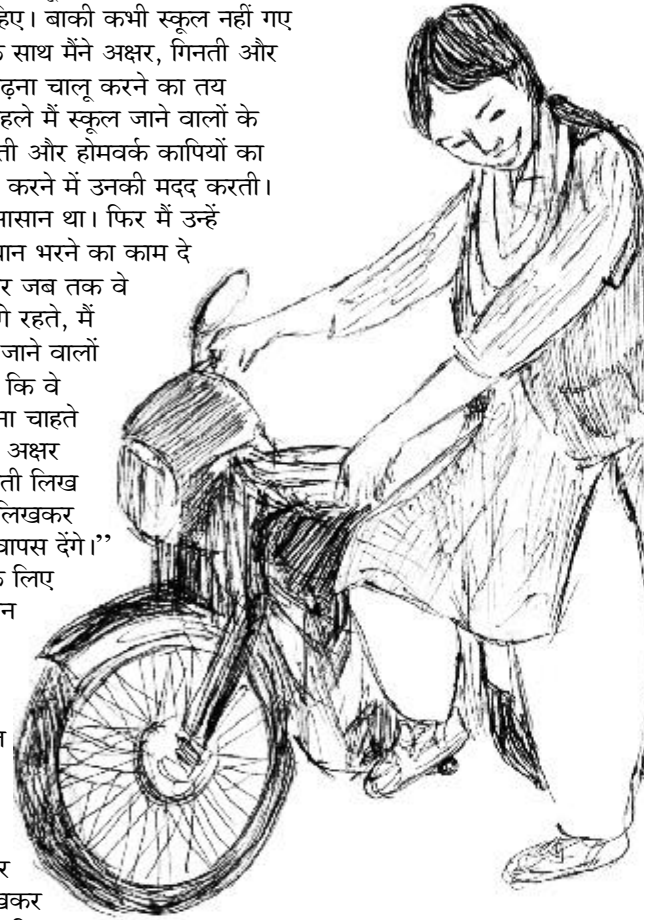 हिए। बाकी कभी स्कूल नहीं गए
साथ मैंने अक्षर, गिनती और
ढ़ना चालू करने का तय
हले मैं स्कूल जाने वालों के
ती और होमवर्क कापियों का
करने में उनकी मदद करती।
आसान था। फिर मैं उन्हें
थान भरने का काम दे
र जब तक वे
गे रहते, मैं
जाने वालों
कि वे
ना चाहते
अक्षर
ती लिख
लिखकर
वापस देंगे।”
लिए
न
र
खकर